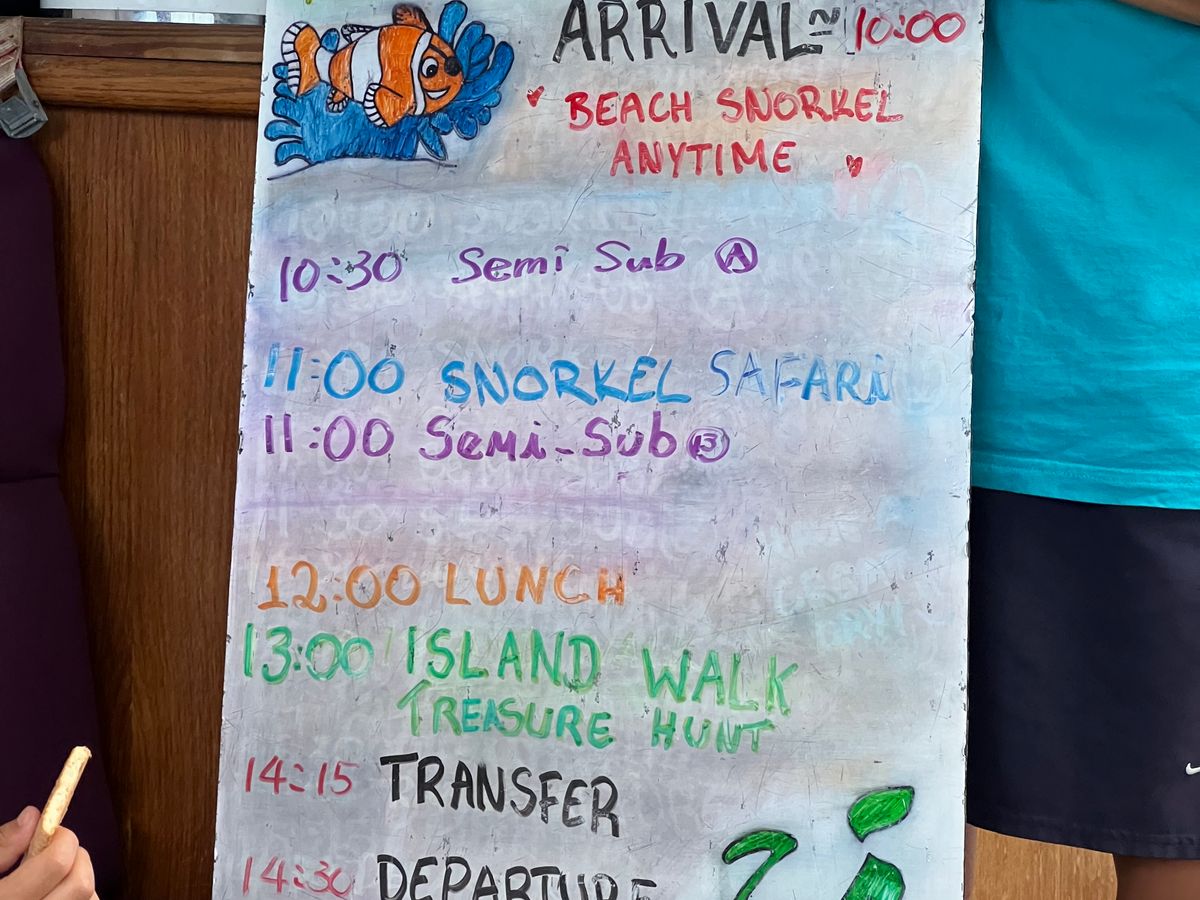 ARRIVAL ~ 10:00
BEACH SNORKEL
ANYTIME
10:30 Semi Sub A
11:00 SNORKEL SAFARi
11:00 Semi-Sub B
12:00 LUNCH
13:00 ISLAND WALK
TREASURE HUNT
14:15 TRANSFER
14:30 DEPARTURE